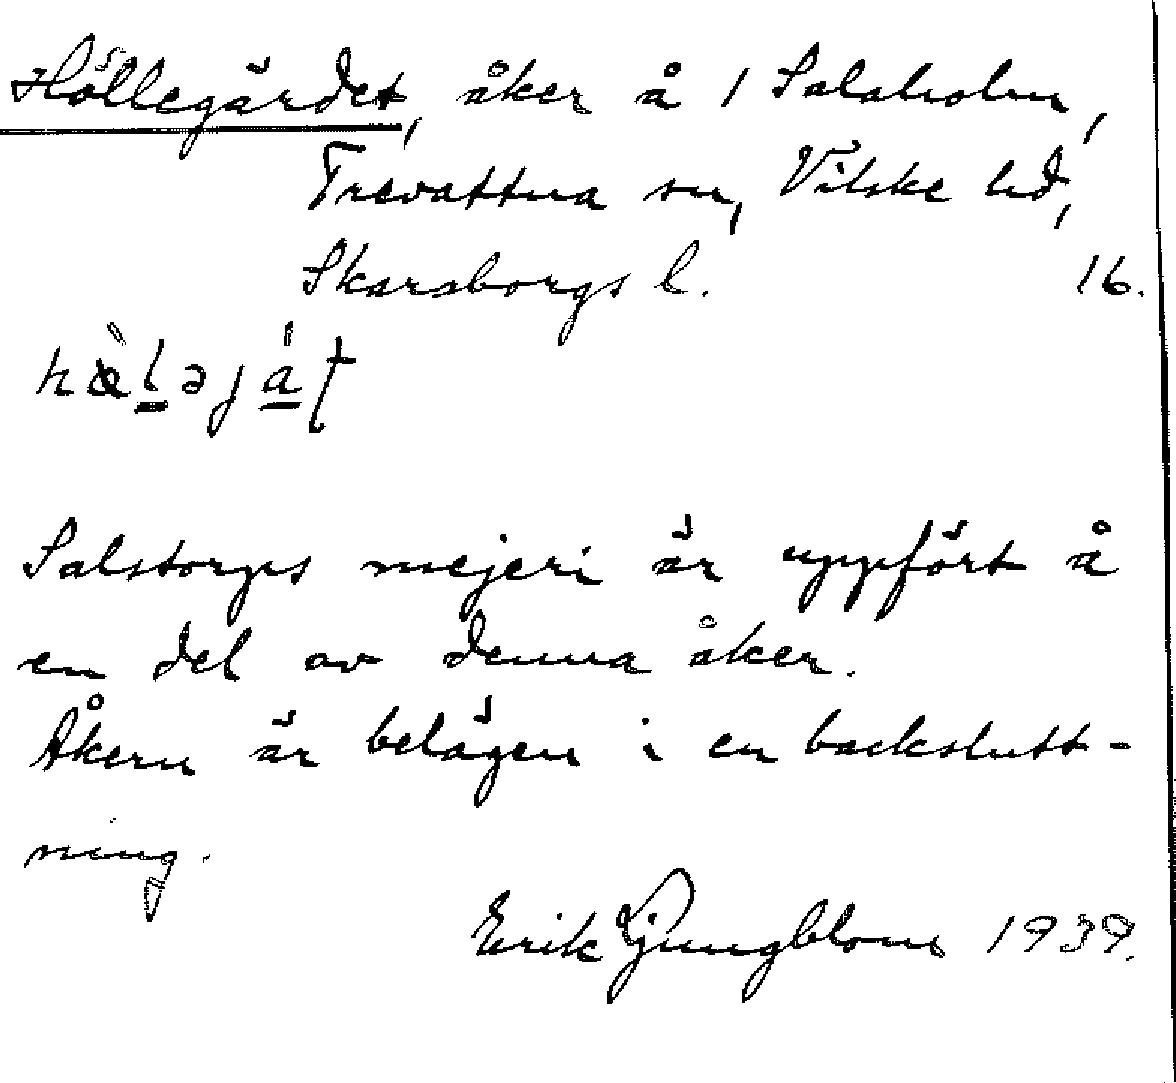 Höllegärdet, åker å 1 Salaholm,
Trevattna sn, Vilske hd,
Skaraborgs l. 16.
hæ̀ḻəjá̱t
Salstorps mejeri är uppfört å
en del av denna åker.
Åkern är belägen i en backslutt-
ning.
Erik Ljungblom 1939.